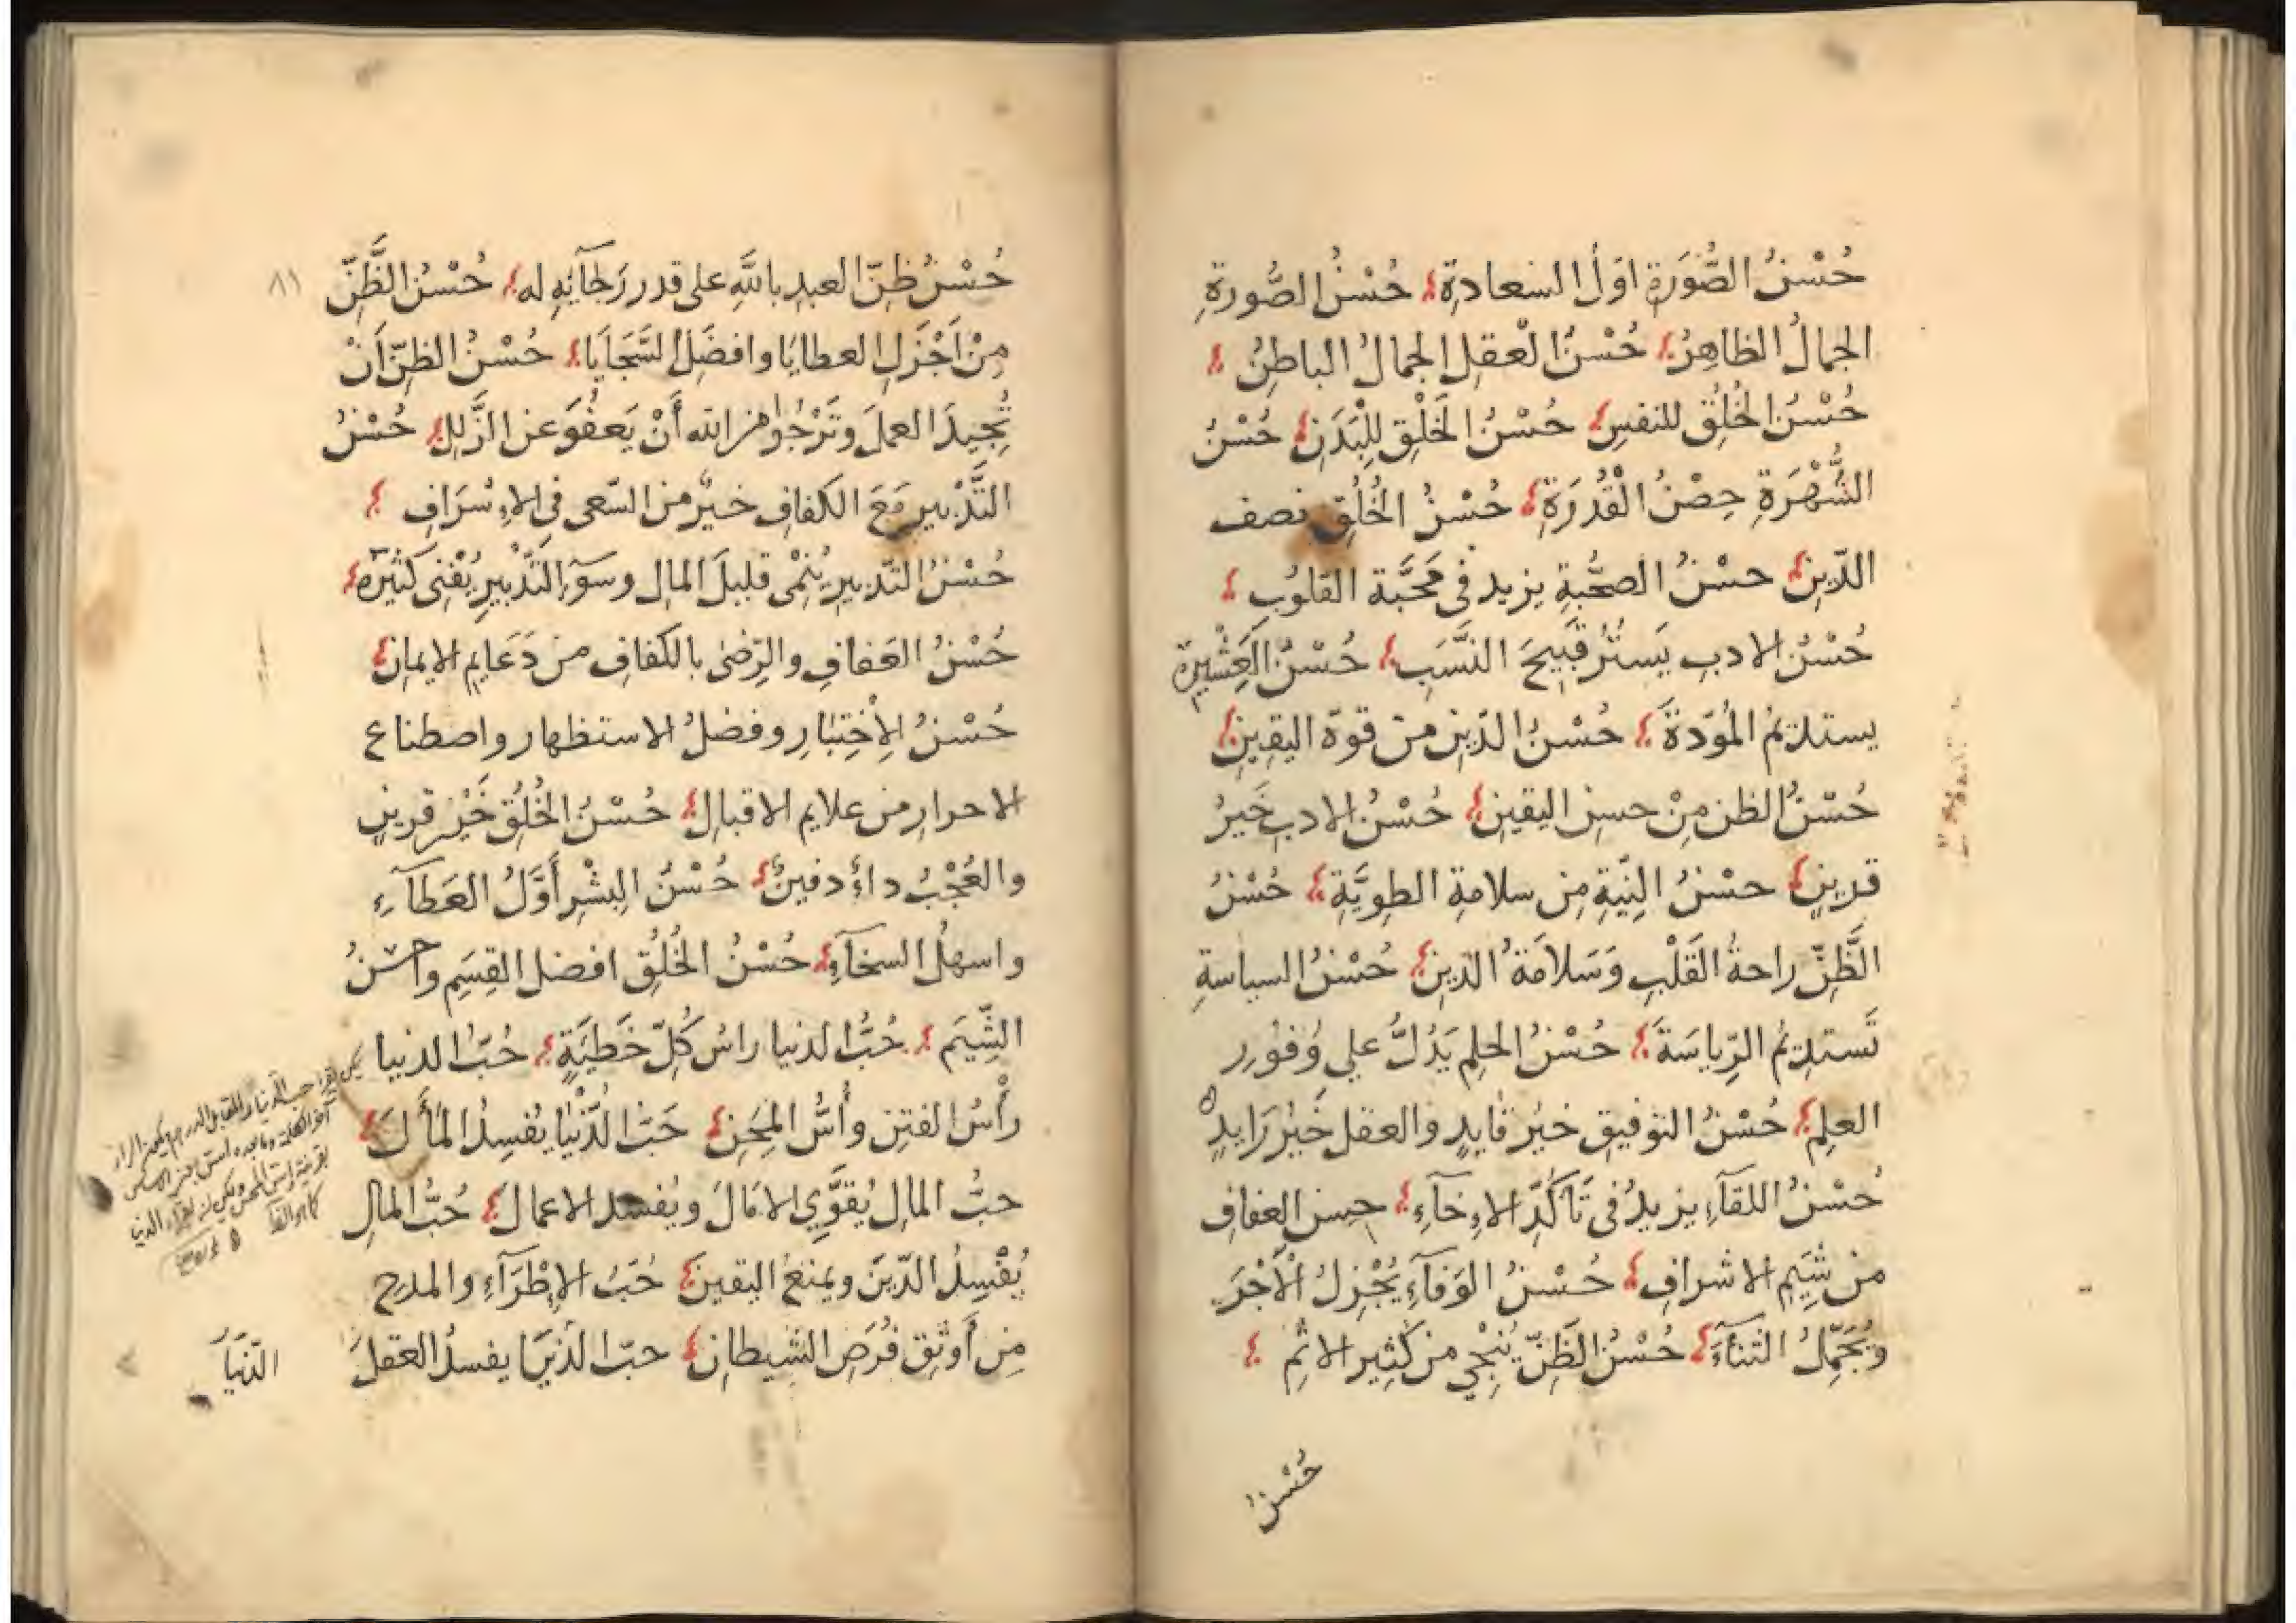 حُسْنُ الصُّوْرَةِ اوّلُ السّعادةِ حُسْنُ الصُّورةِ
الجمالُ الظاهِرُ حُسْنُ العقلِ الجمالُ الباطِنُ
حُسْنُ الخُلُقِ للنفسِ حُسْنُ الخَلْقِ لِلْبَدَنِ حُسْنُ
الشُّهْرَةِ حِصْنُ الْقُدْرَةِ حُسْنُ الخُلُقِ نصف
الدّينِ حسْنُ الصحُّبةِ يزيد فى مَحَبَّة القلوُبِ
حُسْنُ الادبِ يَستُرُ قَبِيحَ النَّسَبِ حُسْنُ العَشْيِرَةِ
يستديمُ المُودّةَ حُسْنُ الدّينِ من قوّة اليقِينِ
حُسْنُ الظن مِنْ حسنِ اليقينِ حُسْنُ الادبِ خَيرُ
قرينٍ حسْنُ النِيّةِ مِن سلامةِ الطوِيَّةِ حُسْنُ
الظَّنِّ راحةُ القَلْبِ وَسَلاَمَةُ الدّينِ حُسْنُ السياسةِ
تَستديمُ الرِّياسَةَ حُسْنُ الحلمِ يَدُلُّ علي وُفوُرِ
العلِمِ حُسْنُ التوفيقِ خيرُ قايدٍ والعقل خَيرُ رَايدٍ
حُسْنُ اللقآءِ يزيدُ فى تَاَكّدِ الاِخآءِ حسن العفافِ
من شِيَمِ الاشرافِ حُسْنُ الوَفآءِ يُجْزِلُ الأَجْرَ
ويُجَمّلُ الثنآءَ حُسْنُ الظَّنّ يُنْجي من كثِير الاثمِ
حُسْنُ
حُسْنُ ظنّ العبدِ باللهِ على قدر رَجآئِهِ له حُسْنُ الظَّنِّ ٨١
مِنْ اَجْزَلِ العطايَا وافضَلِ السَّجَايَا حُسْنُ الظنّ اَنْ
تُجِيدَ العملَ وتَرْجُوا من الله أَنْ يَعفُوَ عن الزَّللِ حُسْنُ
التَّدْبيرِ مَعَ الكَفافِ خيرٌ من السّعى فى الاِسْرَافِ
حُسْنُ التدّبيرِ يُنمْى قليلَ المالِ وسوَء التَّدْبيرِ يُفْنِى كَثيرَهُ
حُسْنُ العَفافِ والرّضىٰ بالكفافِ من دَعَايمِ الايمانِ
حُسْنُ الاِخْتِبَارِ وفضلُ الاستظهارِ واصطناع
الاحرارِ من علايم الاقبالِ حُسْنُ الخُلُقِ خَيْر قرينٍ
والعُجْبُ داءٌ دفينٌ حُسْنُ البِشْرِ أَوَّلُ العَطآءِ
واسهلُ السخآءِ حُسْنُ الخُلُقِ افضل القِسَمِ واحسَنُ
الشِّيَم حُبُّ الدنيا راسُ كُلِّ خَطيَةٍ حُبّ الدنيا
رأسُ الفتِن وأُسُّ المِحَنِ حَبّ الدُّنْيا يُفسِدُ المَأَلَ
حبُّ المالِ يُقَوّي الامَالَ ويُفسد الاعمالَ حُبُّ المالِ
يُفْسِدُ الدّينَ ويمنعُ اليقينَ حُبّ الاِطْرَآءِ والمدح
مِن أَوثَقِ فُرَصِ الشيطانِ حبّ الدُنيَا يفسدُ العقلَ
الدّنيَا